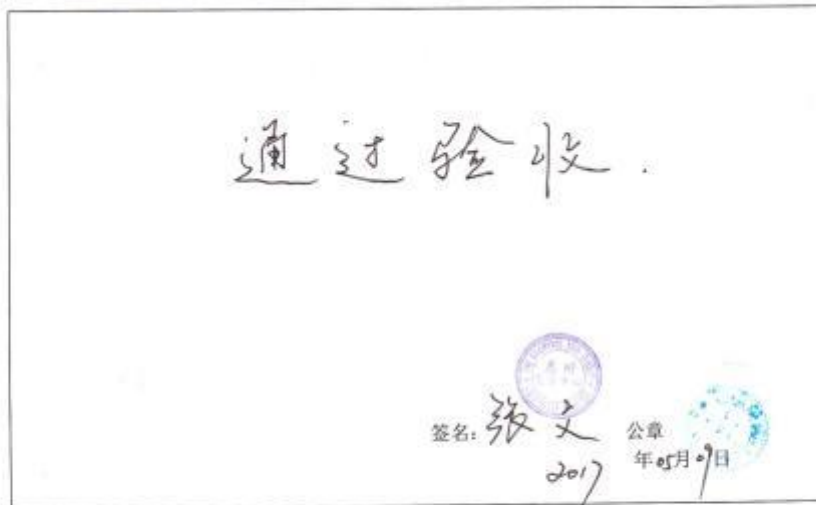 通过验收.
签名:张文 公章
2017年05月09日